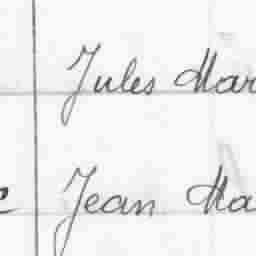 Jules Mar
Jean Ma